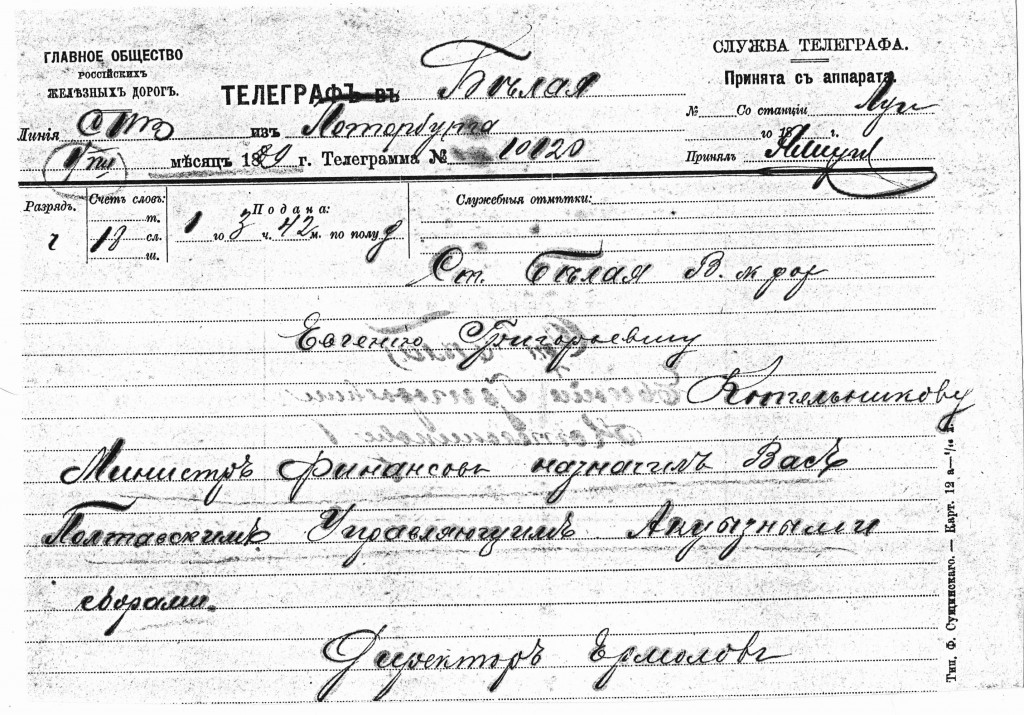 ГЛАВНОЕ ОБЩЕСТВО
РОССІЙСКИХЪ
ЖЕЛѢЗНЫХЪ ДОРОГЪ.
ТЕЛЕГРАФЪ ВЪ Бѣлая
СЛУЖБА ТЕЛЕГРАФА.
Принята съ аппарата.
№ Со станціи Луги
го 18 г.
Принялъ
Линія изъ Петербурга
мѣсяцъ 1889 г. Телеграмма № 10120
Разрядъ.
Счетъ словъ:
т.
18 сл.
ш.
Подана:
1 го 3 ч. 42 м. по полу д
Служебныя отмѣтки:
Ст. Бѣлая В. ж дор
Евгенію Григорьевичу
Котельникову
Министръ финансовъ назначилъ Васъ
Полтавскимъ Управляющимъ Акцызными
сборами.
Директоръ Ермоловъ
Тип. Ф. Сущинскаго. — Карт. 12 а